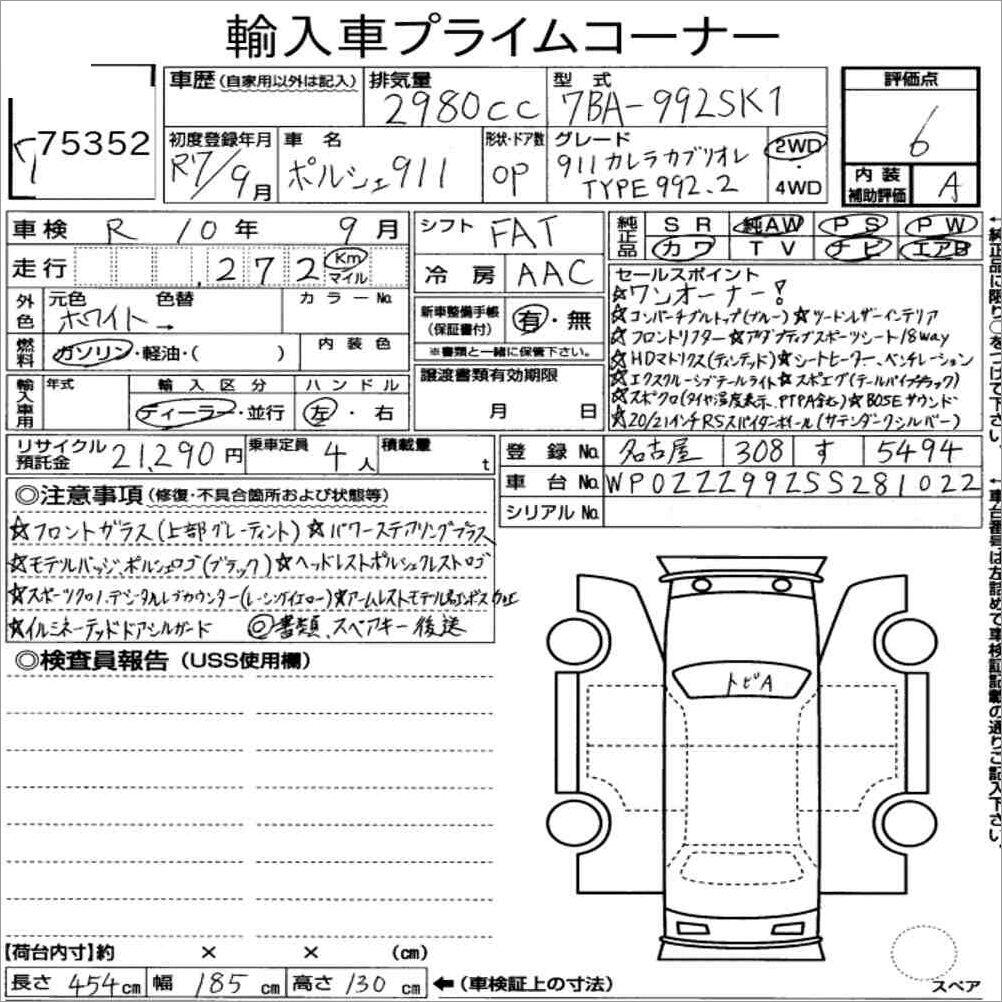 輸入車プライムコーナー
75352
車歴(自家用以外は記入)
排気量
2980cc
型式
7BA-992SK1
評価点
6
初度登録年月
R7/9月
車名
ポルシェ911
形状・ドア数
OP
グレード
911カレラカブリオレ
TYPE992.2
2WD
・
4WD
内装
補助評価
A
車検 R 10年 9月
シフト FAT
純正品
SR 純AW PS PW
カワ TV ナビ エアB
走行 272 Km
マイル
冷房 AAC
外色
元色 色替
ホワイト→
カラーNo.
燃料
ガソリン・軽油・( )
内装色
新車整備手帳
(保証書付)
有・無
※書類と一緒に保管下さい。
セールスポイント
☆ワンオーナー!
☆コンバーチブルトップ(ブルー)☆ツートンレザーインテリア
☆フロントリフター ☆アダプティブスポーツシート/18way
☆HDマトリクス(ティンテッド)☆シートヒーター、ベンチレーション
☆エクスクルーシブテールライト☆スポエグ(テールパイプブラック)
☆スポクロ(タイヤ温度表示、PTPA含む)☆BOSEサウンド
☆20/21インチRSスパイダーホイール(サテンダークシルバー)
輸入車用
年式
輸入区分
ディーラー・並行
ハンドル
左・右
譲渡書類有効期限
月 日
リサイクル
預託金
21,290円
乗車定員
4人
積載量
t
登録No. 名古屋 308 す 5494
車台No. WP0ZZZ99ZSS281022
シリアルNo.
◎注意事項(修復・不具合箇所および状態等)
☆フロントガラス(上部グレーティント)☆パワーステアリングプラス
☆モデルバッジ、ポルシェロゴ(ブラック)☆ヘッドレストポルシェクレストロゴ
☆スポーツクロノ、デジタルレブカウンター(レーシングイエロー)☆アームレストモデル名エンボス加工
☆イルミネーテッドドアシルガード ◎書類、スペアキー後送
◎検査員報告(USS使用欄)
トビA
【荷台内寸】約 × × (cm)
長さ 454cm 幅 185cm 高さ 130cm ←(車検証上の寸法)
スペア
←純正品に限り○をつけて下さい。
←車台番号は左詰めで車検証記載の通りご記入下さい。